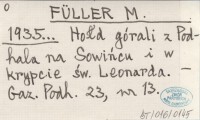 0
FÜLLER M.
1935... Hołd górali z Pod-
hala na Sowińcu i w
krypcie św. Leonarda. —
Gaz. Podh. 23, nr 13.